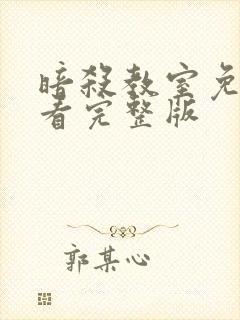 暗殺教室免
看完整版
郭某心